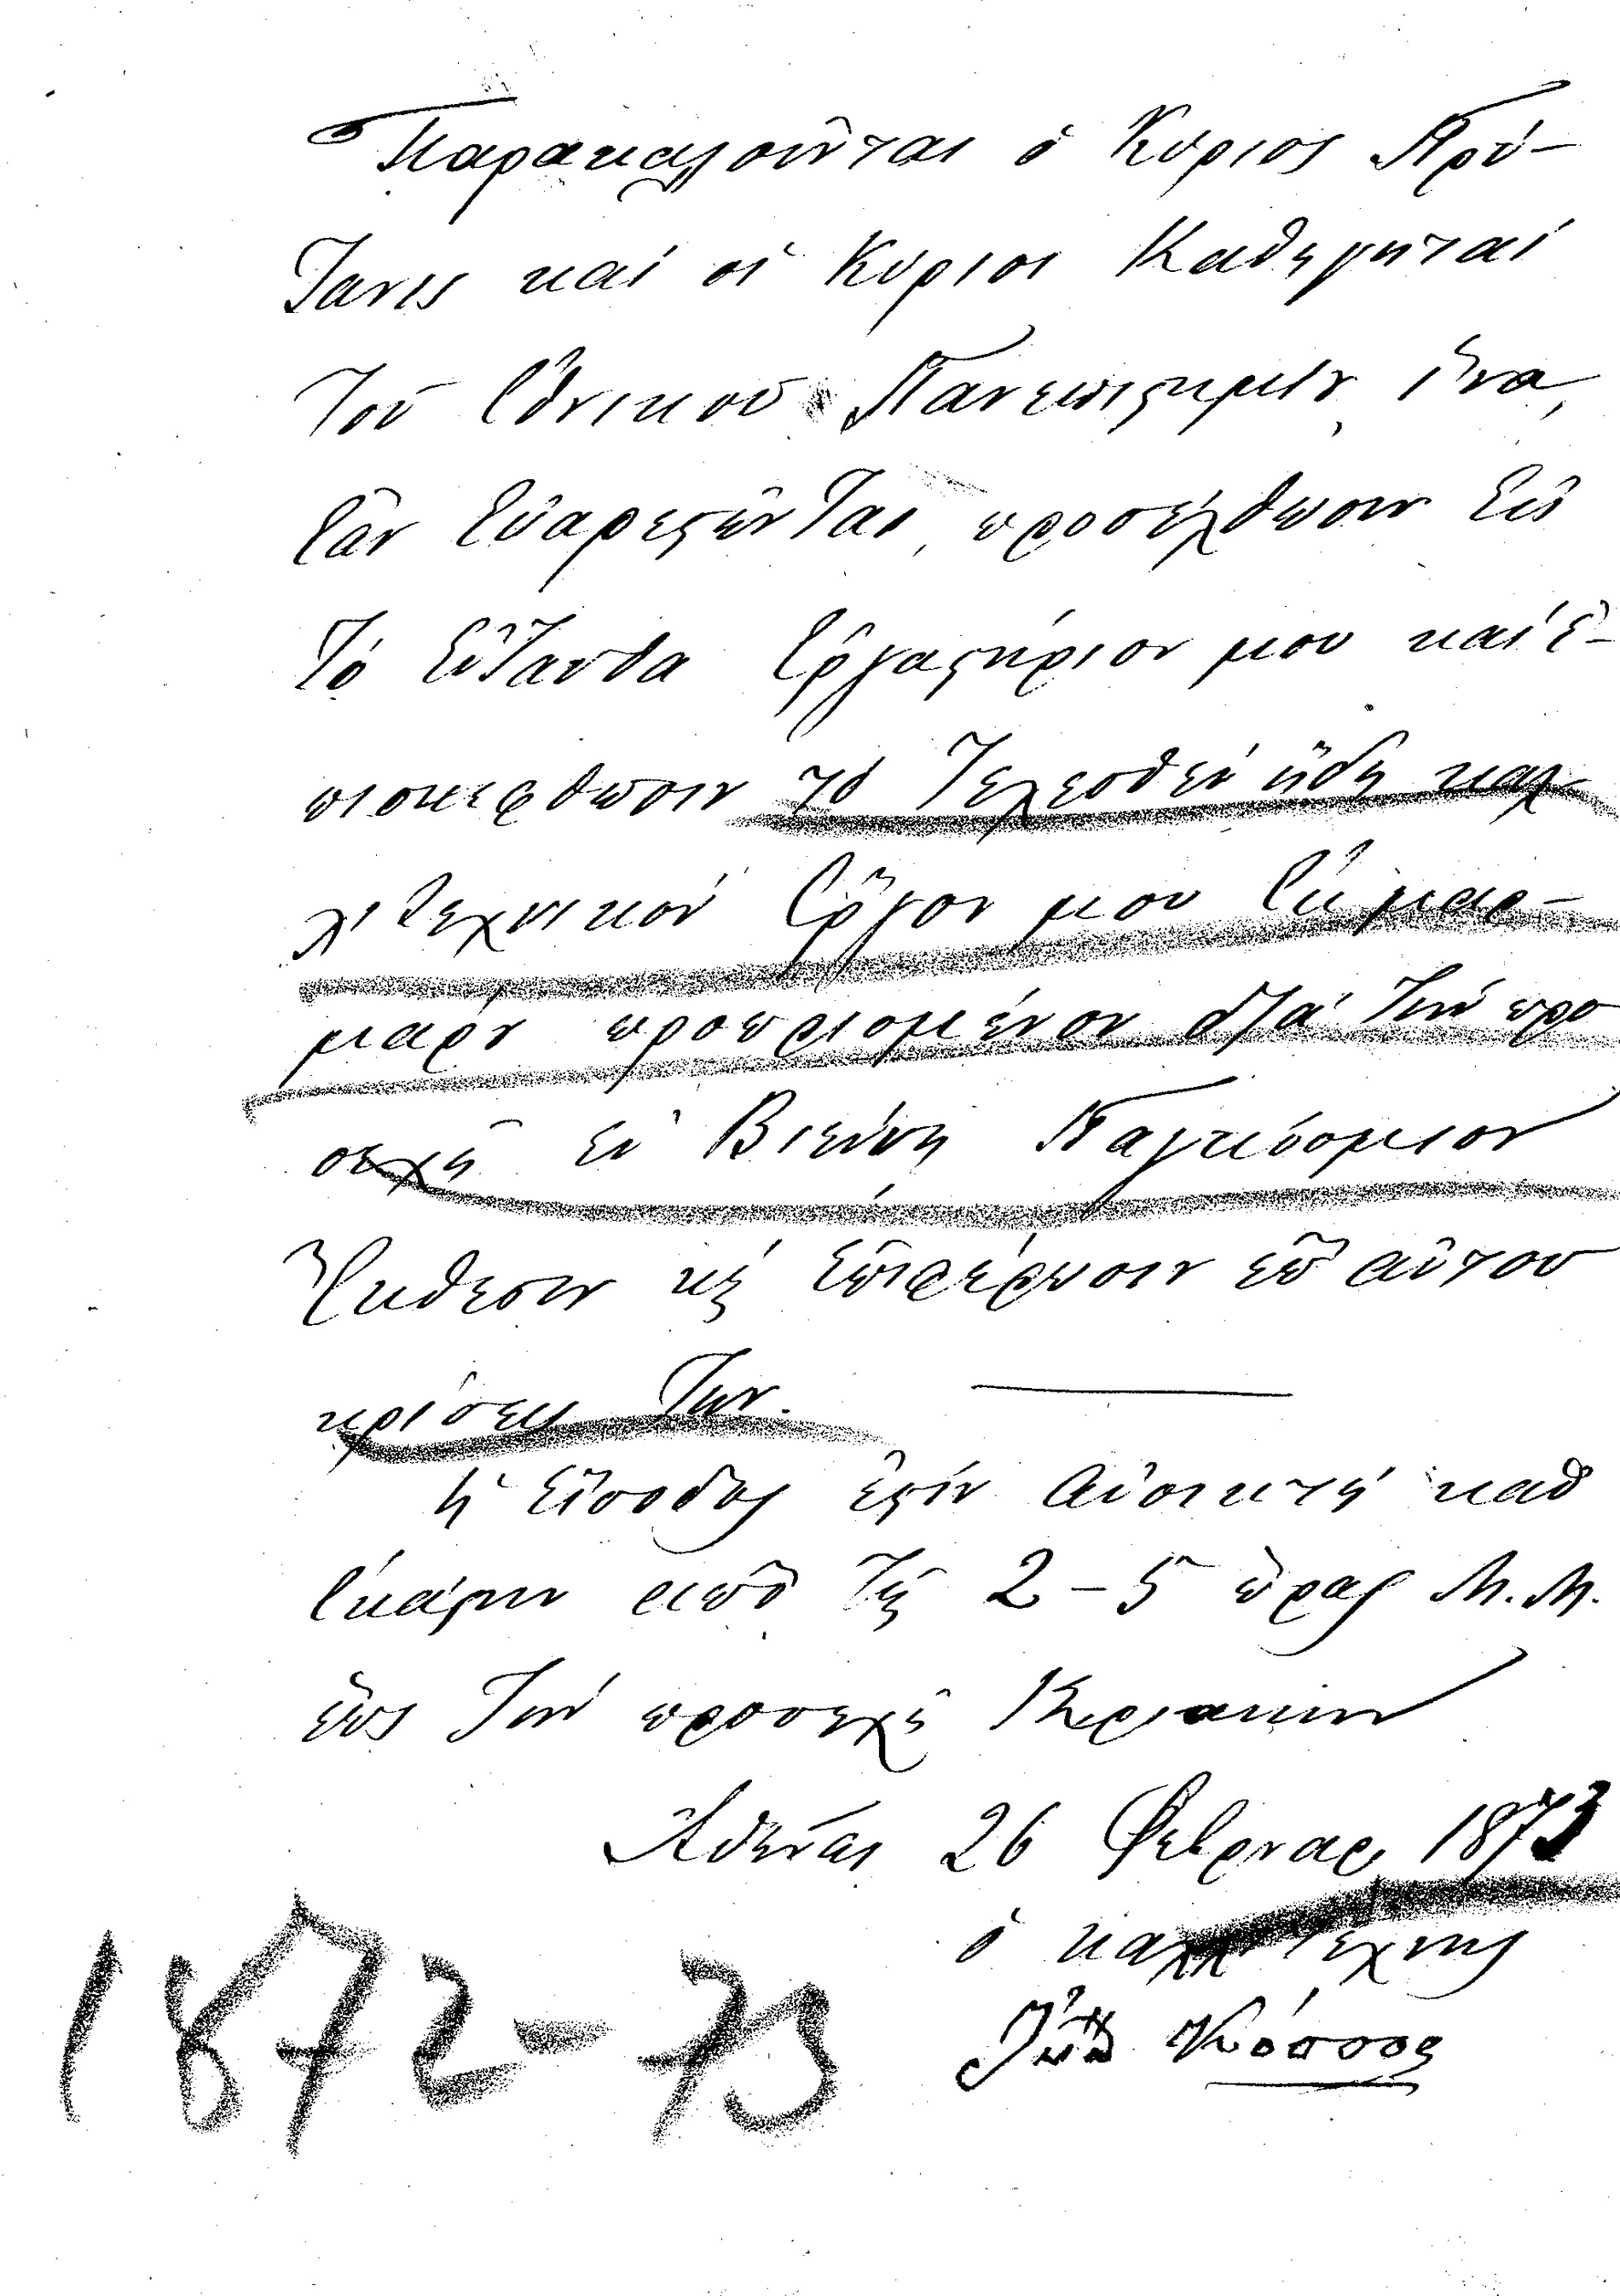 Παρακαλοῦνται ὁ Κύριος Πρύ-
τανις καὶ οἱ Κύριοι Καθηγηταὶ
τοῦ Ἐθνικοῦ Πανεπιστημίου ἵνα,
ἐὰν εὐαρεστῶνται, προσέλθωσιν εἰς
τὸ ἐνταῦθα ἐργαστήριόν μου καὶ ἐ-
πισκεφθῶσιν τὸ τελεσθὲν ἤδη καλ-
λιτεχνικὸν ἔργον μου ἐκ μαρ-
μάρου προωρισμένον διὰ τὴν προ
σεχῆ ἐν Βιέννῃ Παγκόσμιον
Ἔκθεσιν κ ἐπιφέρωσιν ἐπ αὐτοῦ
κρίσεις των.
ἡ εἴσοδος ἐστὶν ἀνοικτὴ καθ
ἑκάστην ἀπὸ τῆς 2-5 ὥρας Μ.Μ.
ἕως τὴν προσεχῆ Κυριακὴν
Ἀθῆναι 26 Φεβρουαρ 1873
ὁ καλλιτέχνης
Ἰωὰ Κόσσος
1872-73